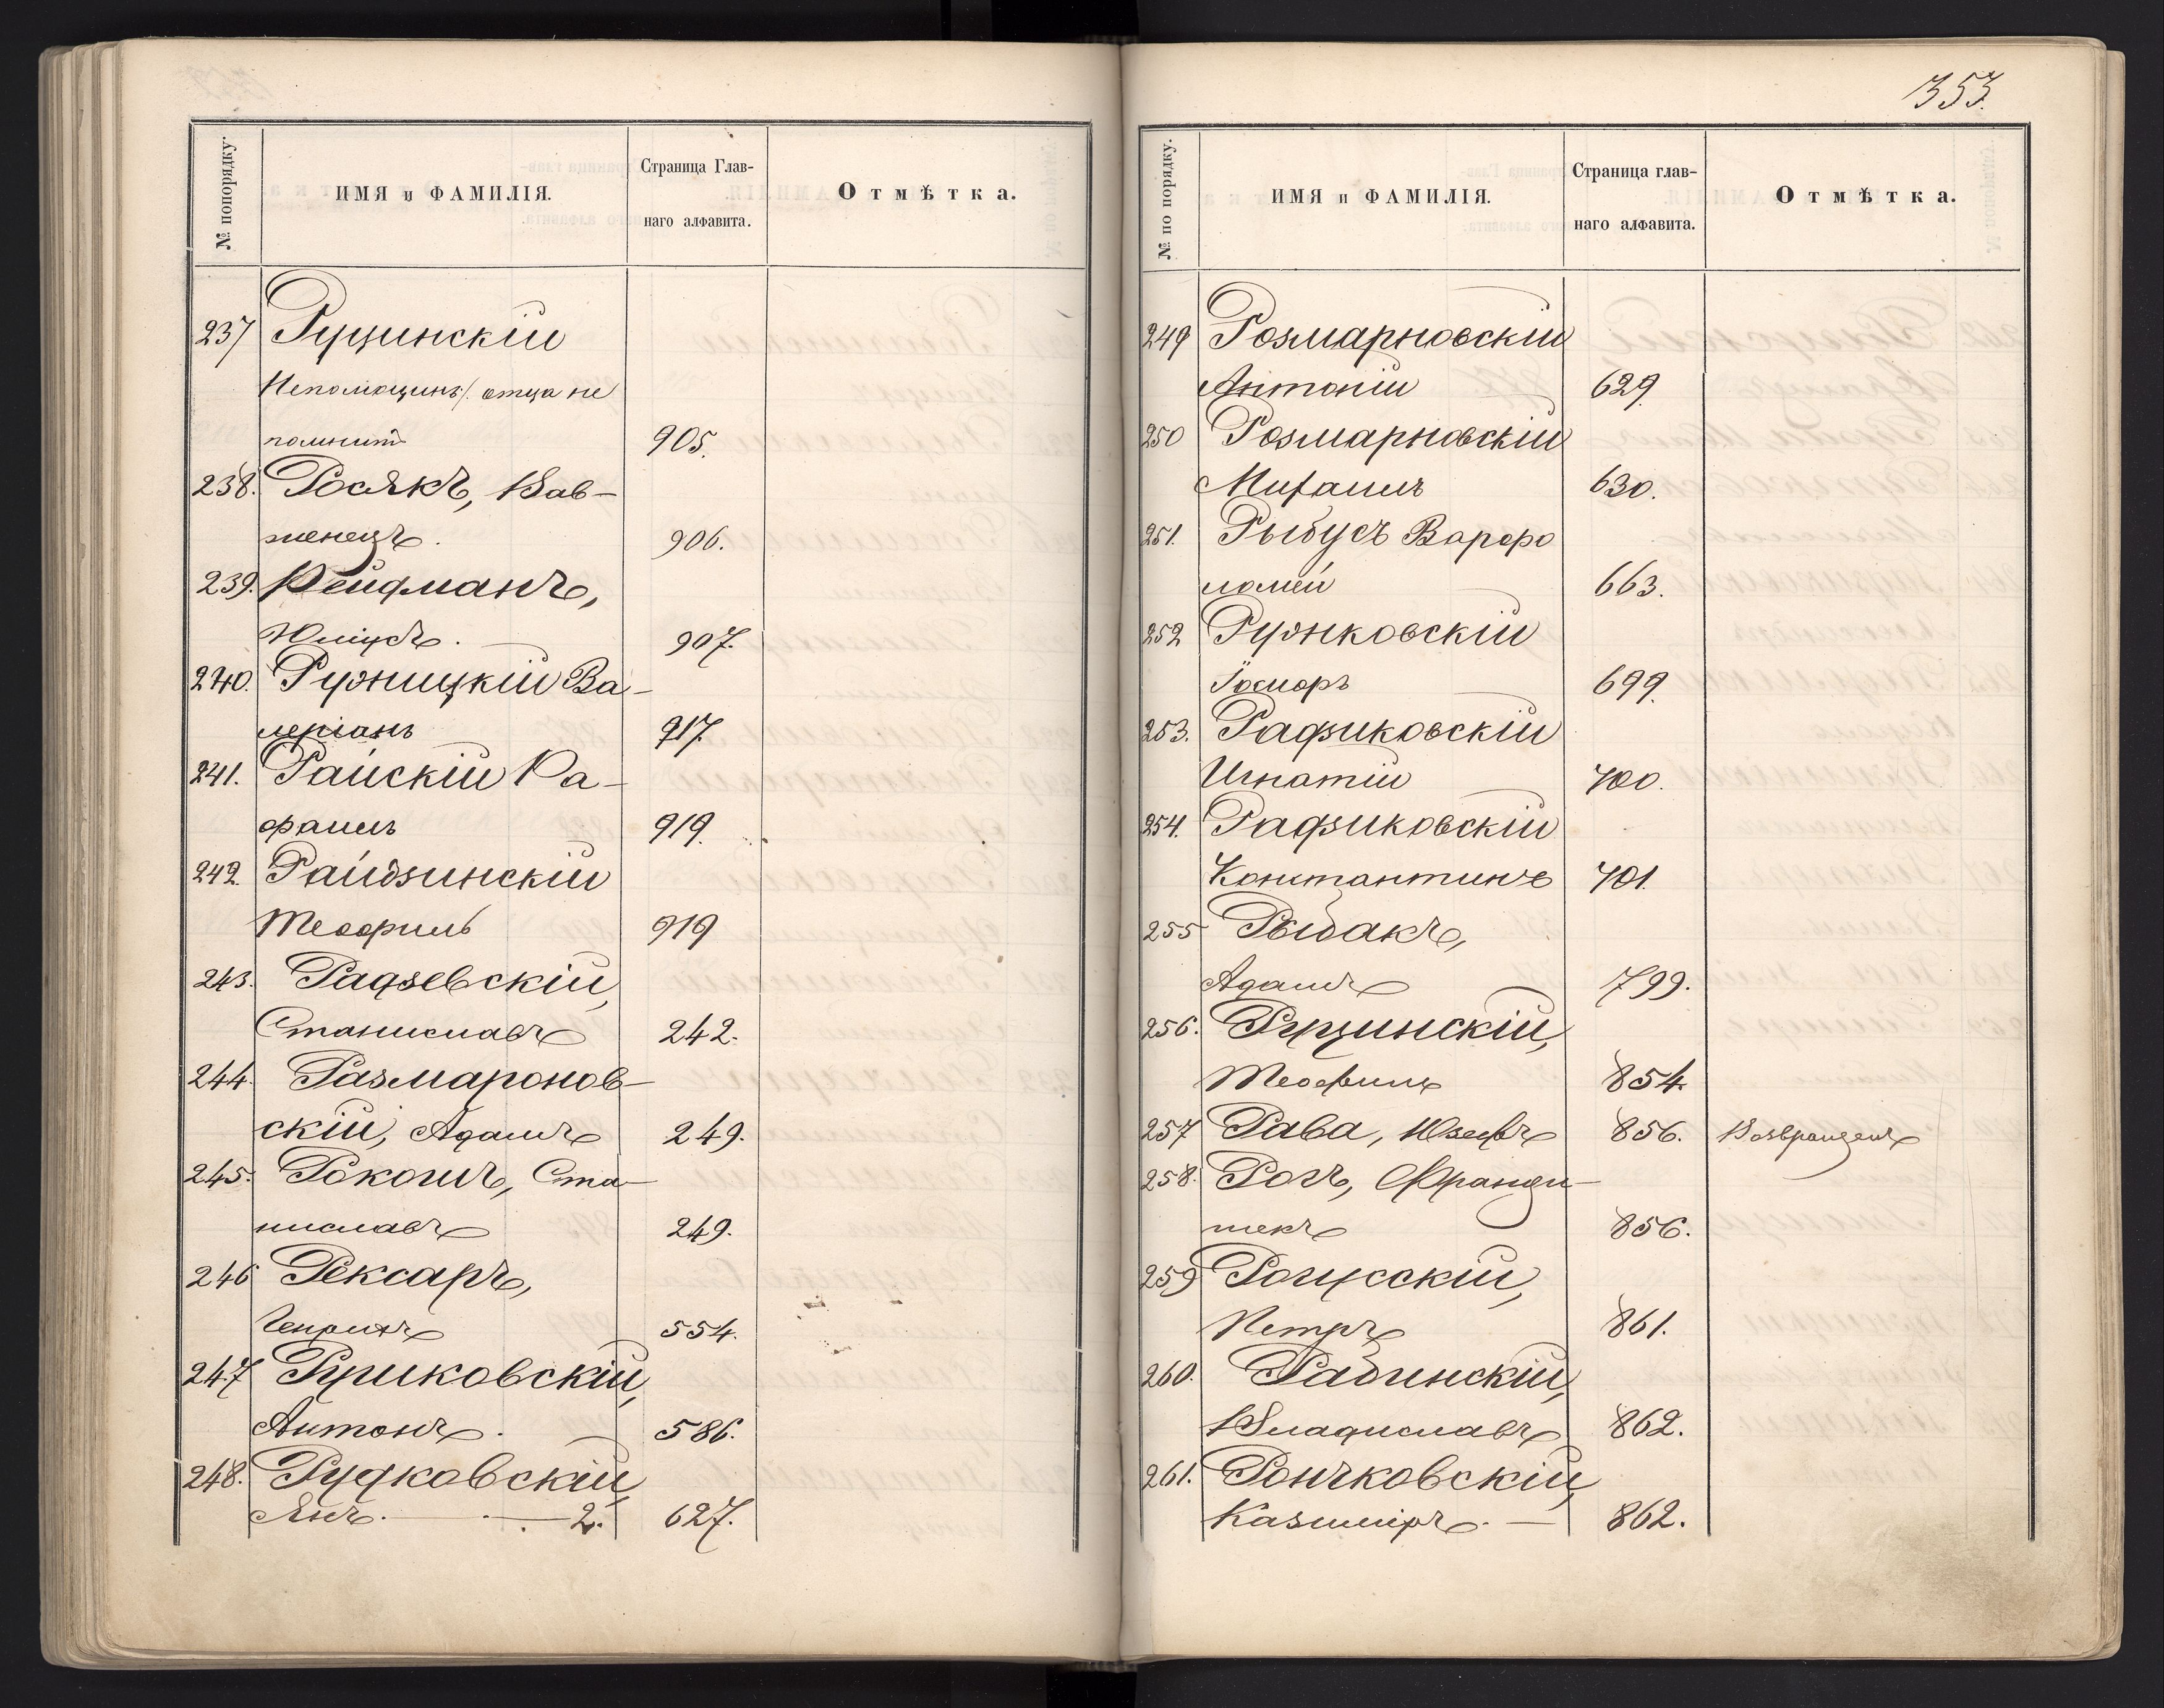 № попорядку.
ИМЯ и ФАМИЛІЯ.
Страница Глав-
наго алфавита.
Отмѣтка.
237 Рущинскій
отца не
помнит 905.
238. Росякъ, Вав-
женецъ. 906.
239. Рейдманъ,
Юліусъ. 907.
240. Рудницкій Ва-
леріанъ 917.
241. Райскій Ра-
фаилъ 919.
242. Райдзинскій
Теофиль 919
243. Радзевскій,
Станиславъ 242.
244. Размаронов-
скій, Адамъ 249.
245. Рокошъ, Ста-
ниславъ 249.
246 Рексаръ,
Генрихъ 554.
247 Руриковскій,
Антонъ. 586.
248. Рудковскій,
Янъ. 2. 627.
353.
№ по порядку.
ИМЯ и ФАМИЛІЯ.
Страница глав-
наго алфавита.
Отмѣтка.
249 Розмарновскій
Антоній 629.
250 Розмарновскій
Михаилъ 630.
251. Рыбусъ Варфо
ломей 663.
252 Рудковскій
699.
253. Радзиковскій
Игнатій 700.
254. Радзиковскій
Константинъ 701.
255 Рыбакъ,
Адамъ 799.
256. Рущинскій,
Теофилъ 854.
257 Рава, Юзефъ 856. Возвращенъ
258. Рогъ, Франци-
шекъ 856.
259
Петръ 861.
260. Рабинскій,
Владиславъ 862.
261. Рончковскій,
Казиміръ. 862.